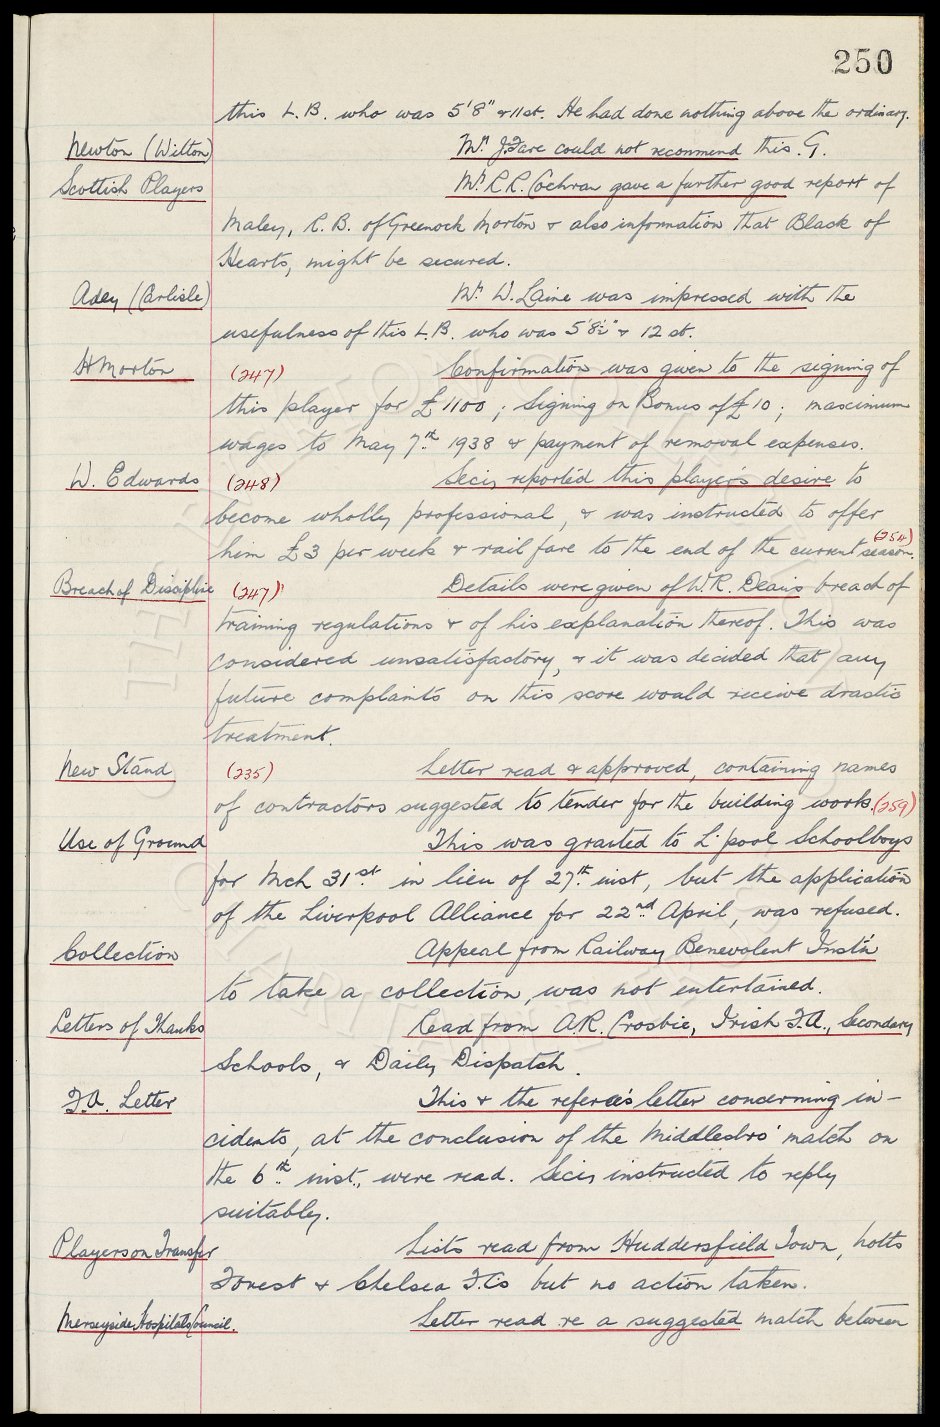 250
this L.B. who was 5'8" & 11 st. He had done nothing above the ordinary.
Newton (Wilton) Mr. J. Fare could not recommend this. G.
Scottish Players Mr. R.R. Cochran gave a further good report of
Maley, R.B. of Greenock Morton & also information that Black of
Hearts, might be secured.
Adey (Carlisle) Mr. W. Laine was impressed with the
usefulness of this L.B. who was 5'8½" & 12 st.
H Morton (247) Confirmation was given to the signing of
this player for £1100; Signing on Bonus of £10; maximum
wages to May 7th 1938 & payment of removal expenses.
W. Edwards (248) Secy reported this player's desire to
become wholly professional, & was instructed to offer
him £3 per week & rail fare to the end of the current season. (254)
Breach of Discipline (247) Details were given of W.R. Dean's breach of
training regulations & of his explanation thereof. This was
considered unsatisfactory, & it was decided that any
future complaints on this score would receive drastic
treatment.
New Stand (235) Letter read & approved, containing names
of contractors suggested to tender for the building works. (259)
Use of Ground This was granted to L'pool Schoolboys
for Mch 31st in lieu of 27th inst, but the application
of the Liverpool Alliance for 22nd April, was refused.
Collection Appeal from Railway Benevolent Inst'n
to take a collection, was not entertained.
Letters of Thanks Read from A.R. Crosbie, Irish F.A., Secondary
Schools, & Daily Dispatch.
F.A. Letter This & the referee's letter concerning in-
cidents, at the conclusion of the Middlesbro' match on
the 6th inst., were read. Secy instructed to reply
suitably.
Players on Transfer Lists read from Huddersfield Town, Notts
Forest & Chelsea F.C's but no action taken.
Merseyside Hospitals Council. Letter read re a suggested match between